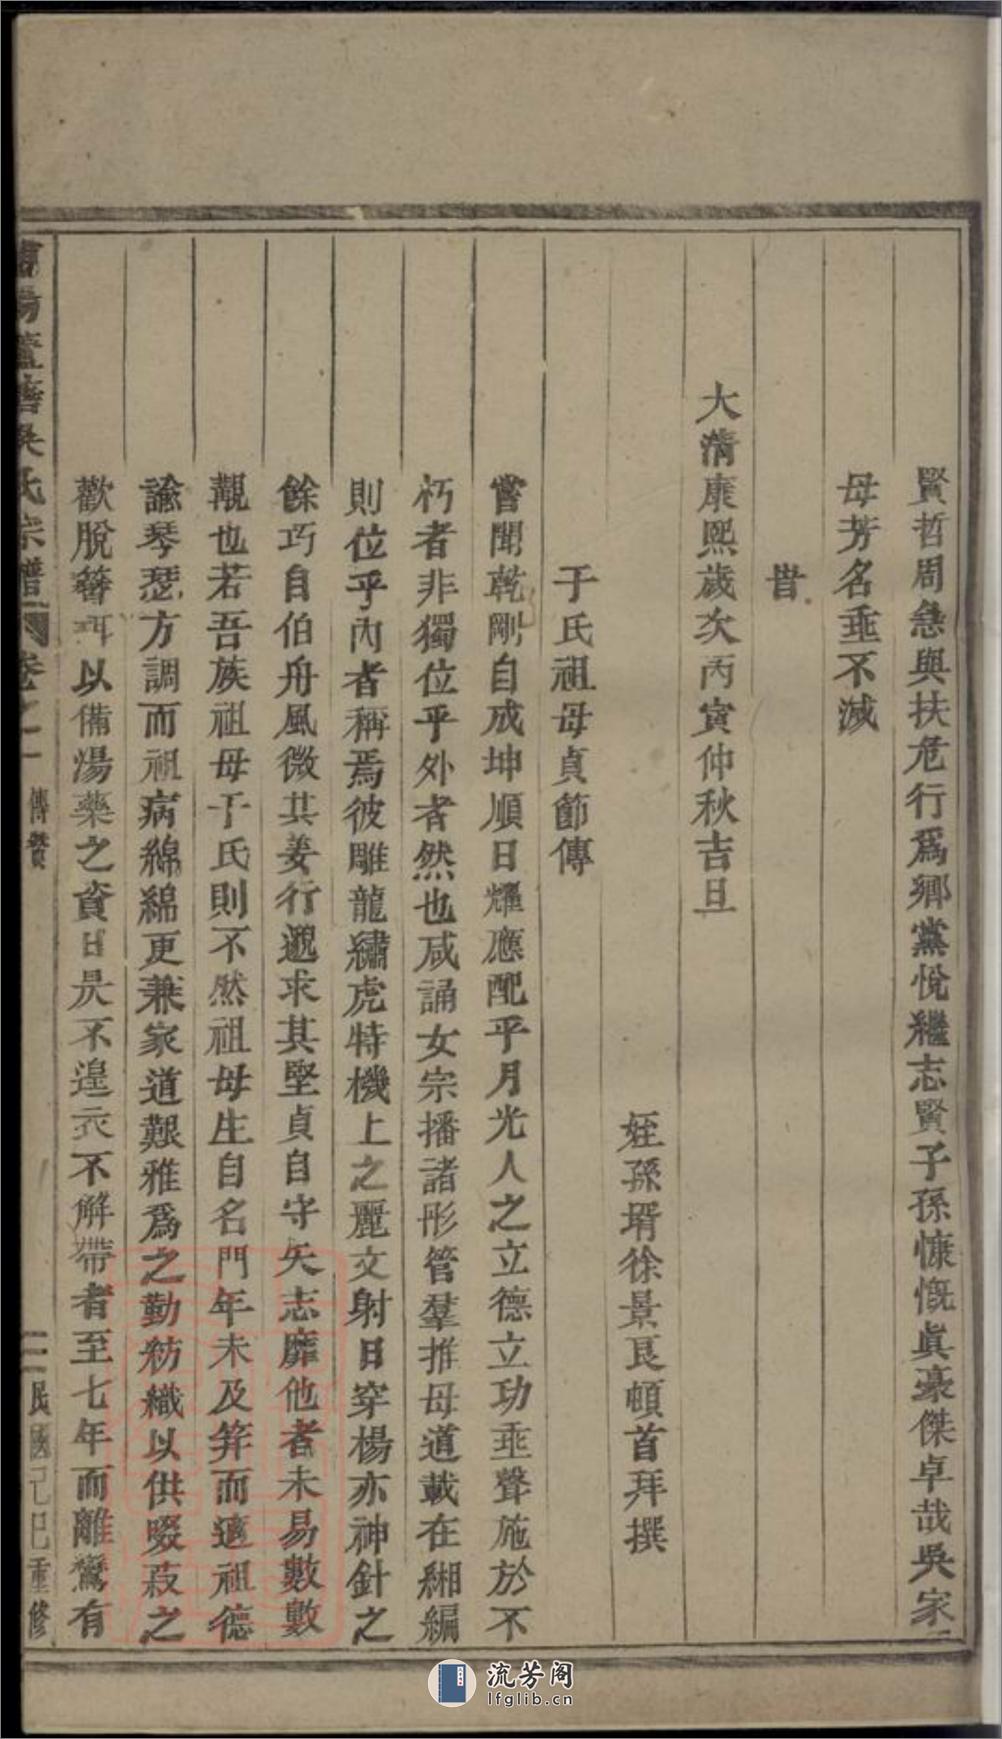 賢哲周急與扶危行爲鄉黨悅繼志賢子孫慷慨眞豪傑卓哉吳家
母芳名垂不滅
旹
大淸康熙歲次丙寅仲秋吉旦
姪孫壻徐景良頓首拜撰
于氏祖母貞節傳
嘗聞乾剛自成坤順日耀應配乎月光人之立德立功垂聲施於不
朽者非獨位乎外者然也咸誦女宗播諸彤管羣推母道載在緗編
則位乎內者稱焉彼雕龍繡虎特機上之麗文射日穿楊亦神針之
餘巧自伯舟風微共姜行邈求其堅貞自守矢志靡他者未易數數
覯也若吾族祖母于氏則不然祖母生自名門年未及笄而適祖德
諭琴瑟方調而祖病綿綿更兼家道艱雅爲之勤紡織以供啜菽之
歡脫簪珥以備湯藥之資日昃不遑衣不解帶者至七年而離鸞有
陽 吳氏宗譜 卷之二 傳贊 二 民國己巳重修
流芳阁
lfglib.cn